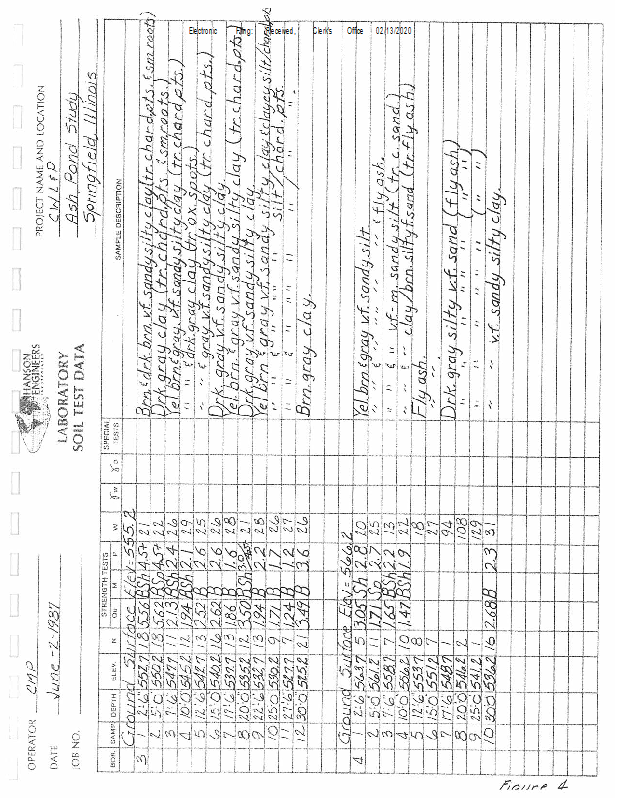 Electronic Filing: Received, Clerk's Office 02/13/2020
HANSON ENGINEERS
OPERATOR CMP
DATE June-2-1987
JOB NO.
LABORATORY
SOIL TEST DATA
PROJECT NAME AND LOCATION
CWL&P
Ash Pond Study
Springfield, Illinois
STRENGTH TESTS
SPECIAL TESTS
BOR. SAMP. DEPTH ELEV. N Qu M P W γw γD SAMPLE DESCRIPTION
Ground Surface Elev= 555.2
3 1 2'6 552.7 18 5.56 BSh 4.5+ 21 Brn. & drk. brn. v.f. sandy silty clay (tr. chard. pts. & sm. roots)
2 5'0 550.2 18 5.62 BSp 4.5+ 22 Drk. gray clay (tr. chard. pts. & sm. roots.)
3 7'6 547.7 11 2.13 BSh 2.4 26 Yel. brn. & gray v.f. sandy silty clay (tr. chard. pts.)
4 10'0 545.2 12 1.94 BSh 2.1 29 " " & drk. gray clay (tr. ox. spots.)
5 12'6 542.7 13 2.52 B 2.6 25 " " & gray v.f. sandy silty clay (tr. chard. pts.)
6 15'0 540.2 16 2.62 B 2.6 26 Drk. gray v.f. sandy silty clay.
7 17'6 537.7 13 1.86 B 1.6 28 Yel. brn. & gray v.f. sandy silty clay (tr. chard. pts.)
8 20'0 535.2 12 3.50 BSh 3.0 21 Drk. gray v.f. sandy silty clay.
9 22'6 532.7 13 1.94 B 2.2 28 Yel. brn. & gray v.f. sandy silty clay & clayey silt/chard. pts.
10 25'0 530.2 9 1.71 B 1.7 26 " " " " silt/chard. pts.
11 27'6 527.7 7 1.24 B 1.2 27 " " " " " "
12 30'0 525.2 21 3.49 B 3.6 26 Brn. gray clay.
Ground Surface Elev= 566.2
4 1 2'6 563.7 5 3.05 Sh 2.8 10 Yel. brn. & gray v.f. sandy silt.
2 5'0 561.2 11 1.71 Sp 2.7 25 " " " " " & fly ash.
3 7'6 558.7 7 1.65 BSh 2.2 13 " " & " v.f.-m. sandy silt (tr. c. sand)
4 10'0 556.2 10 1.47 BSh 1.9 22 " " & " clay/brn. silty f. sand (tr. fly ash)
5 12'6 553.7 8 18 Fly ash.
6 15'0 551.2 7 27 " "
7 17'6 548.7 1 94 Drk. gray silty v.f. sand (fly ash)
8 20'0 546.2 2 108 " " " " " ( " " )
9 25'0 541.2 1 129 " " " " " ( " " )
10 30'0 536.2 16 2.68 B 2.3 31 " " v.f. sandy silty clay.
Figure 4